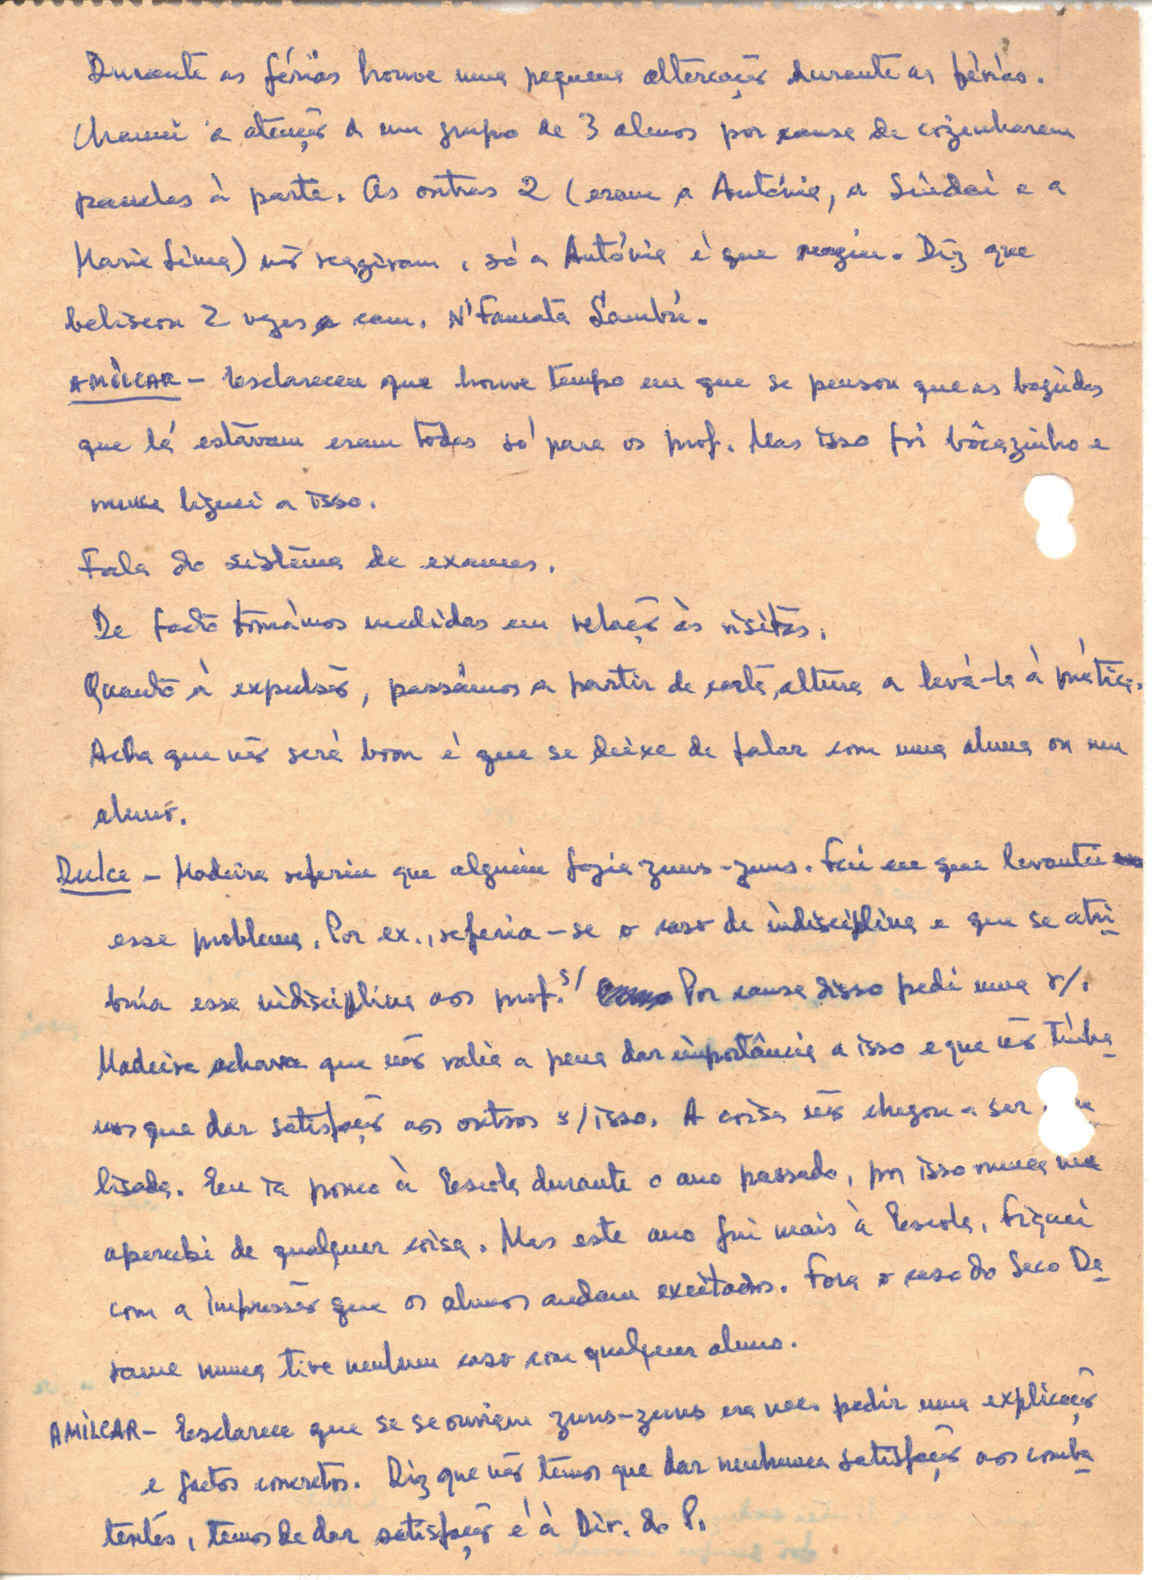 Durante as férias houve uma pequena altercação durante as férias.
Chamei a atenção d um grupo de 3 alunos por causa de cozinharem
panelas à parte. As outras 2 (eram a Antónia, a Sindai e a
Maria Lima) não reagiram, só a Antónia é que reagiu. Diz que
beliscou 2 vezes a cam. N'Famata Sambú.
AMÍLCAR - Esclareceu que houve tempo em que se pensou que as bagidas
que lá estavam eram todas só para os prof. Mas isso foi bôcazinho e
nunca liguei a isso.
Fala do sistema de exames.
De facto tomámos medidas em relação às visitas.
Quanto à expulsão, passámos a partir de certa altura a levá-la à prática.
Acha que não será bom é que se deixe de falar com uma aluna ou um
aluno.
Dulce - Madeira referiu que alguém fazia zuns-zuns. Fui eu que levantei
esse problema. Por ex., referia-se o caso de indisciplina e que se atri
buía essa indisciplina aos prof.s/ Por causa disso pedi uma r/.
Madeira achava que não valia a pena dar importância a isso e que não tínha
mos que dar satisfação aos outros s/isso. A coisa não chegou a ser
lisada. Eu ia pouco à Escola durante o ano passado, por isso nunca me
apercebi de qualquer coisa. Mas este ano fui mais à Escola. Fiquei
com a impressão que os alunos andam excitados. Fora o caso do Seco Da
rame nunca tive nenhum caso com qualquer aluno.
AMÍLCAR - Esclarece que se se ouviam zuns-zuns era nec. pedir uma explicação
e factos concretos. Diz que não temos que dar nenhuma satisfação aos comba
tentes, temos de dar satisfação é à Dir. do P.